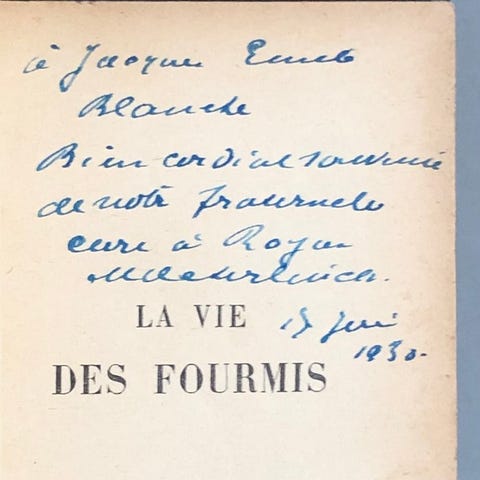 à Jacques Emile
Blanche
Bien cordial souvenir
de notre fraternelle
cure à Royat
Maeterlinck.
LA VIE
15 Juin
1930.
DES FOURMIS